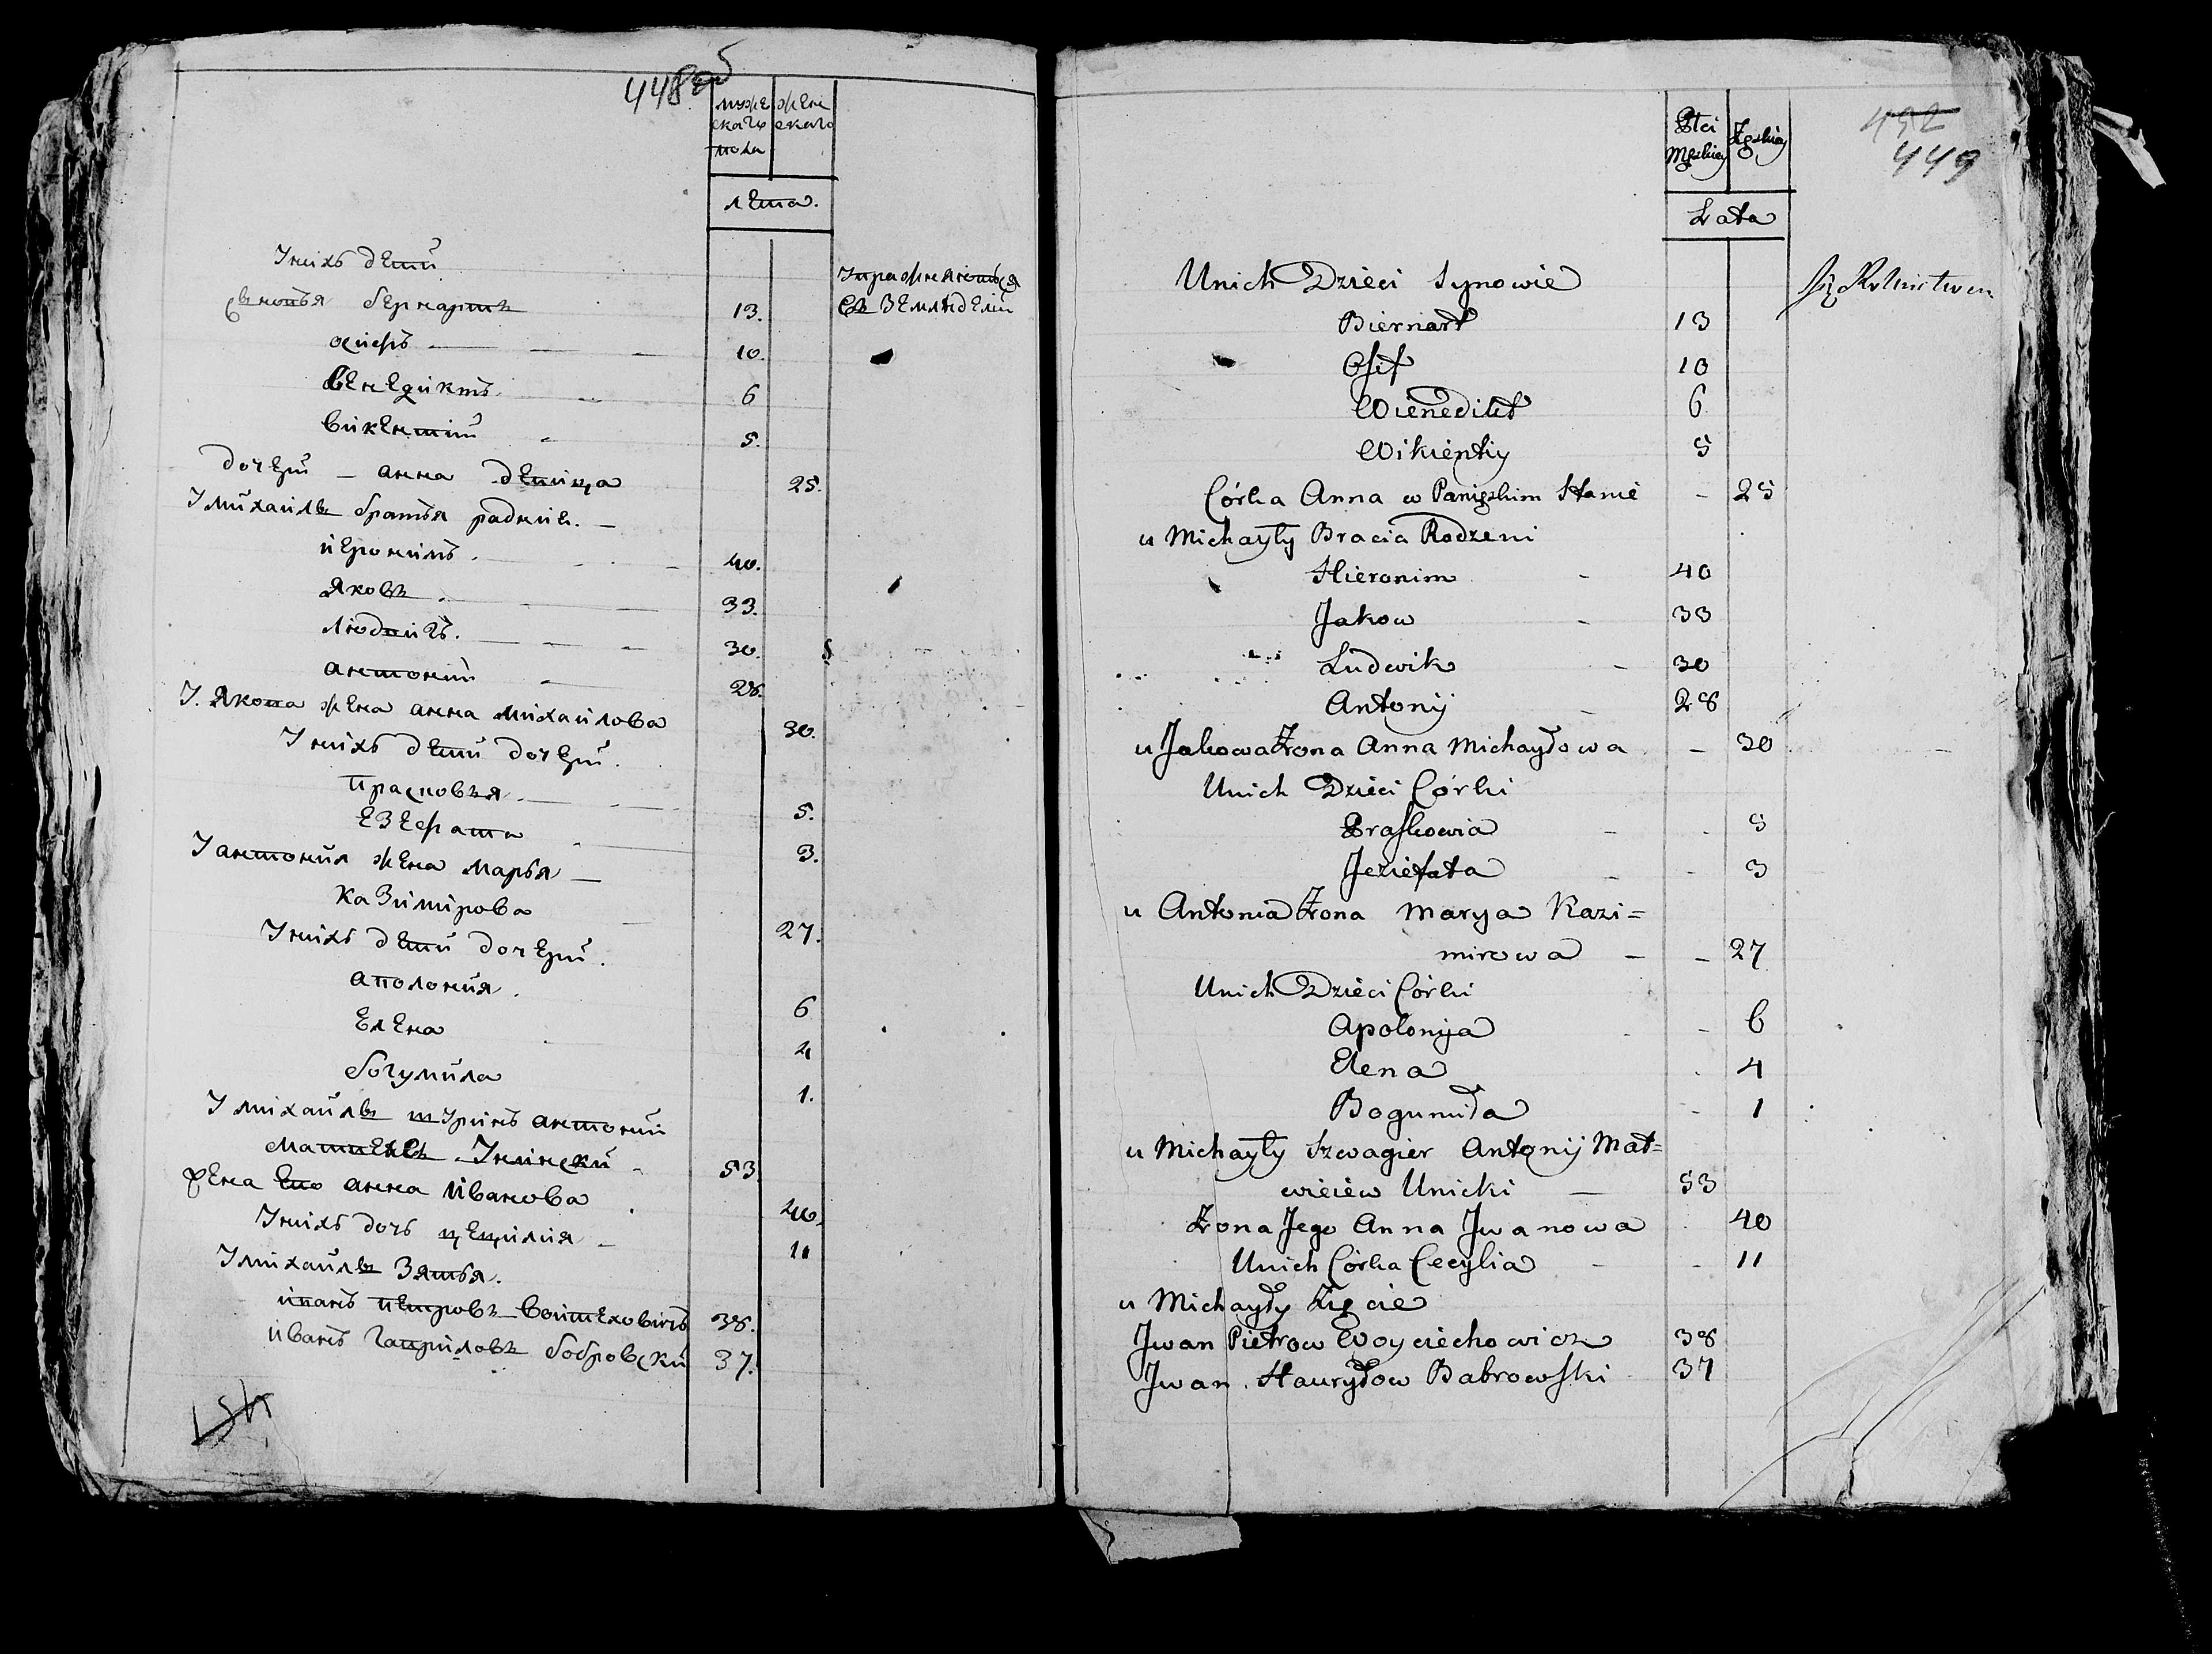 448 об
муже
скаго
пола
женс
скаго
лета.
Унихъ дети
сыновья бернартъ 13.
осифъ 10.
венедиктъ 6
викентий 5.
дочери – анна девица 25.
Умихаилы братья родние.
иеронимъ. 40.
Яковъ 33.
Людвигъ. 30.
антоний 28.
У. Якова жена анна михаилова 30.
Унихъ дети дочери.
Прасковья 5.
Езефата 3.
Уантония жена марья
Казимирова 27.
Унихъ дети дочери.
аполония. 6
Елена 4
богумила 1.
Умихаилы шуринъ антоний
матвеевъ Униский 53.
жена его анна иванова 40.
Унихъ дочь цецилия 11
Умихаилы Зятья.
иванъ петровъ Войтеховичъ 38.
иванъ гавриловъ бобровский 37.
Упражняются
въ Земледелии
452
449
Płci
Męskiey
Żęskiey
Lata
Unich Dzieci Synowie
Biernart 13
Osif 10
Wienedikt 6
Wikientiy 5
Córka Anna w Panięskim Stanie – 25
u Michayły Bracia Rodzeni
Hieronim 40
Jakow 33
Ludwik 30
Antonij 28
u Jakowa Żona Anna Michayłowa – 30
Unich Dzieci Córki
Praskowia 5
Jeziefata 3
u Antonia Żona Marya Kazi=
mirowa – – 27
Unich Dzieci Córki
Apolonija 6
Elena 4
Bogumiła 1
u Michayły Szwagier Antonij Mat=
wieiew Unicki — 53
Żona Jego Anna Jwanowa 40
Unich Córka Cecylia 11
u Michayły Zięcie
Jwan Pietrow Woyciechowicz 38
Jwan Hauryłow Babrowski 37